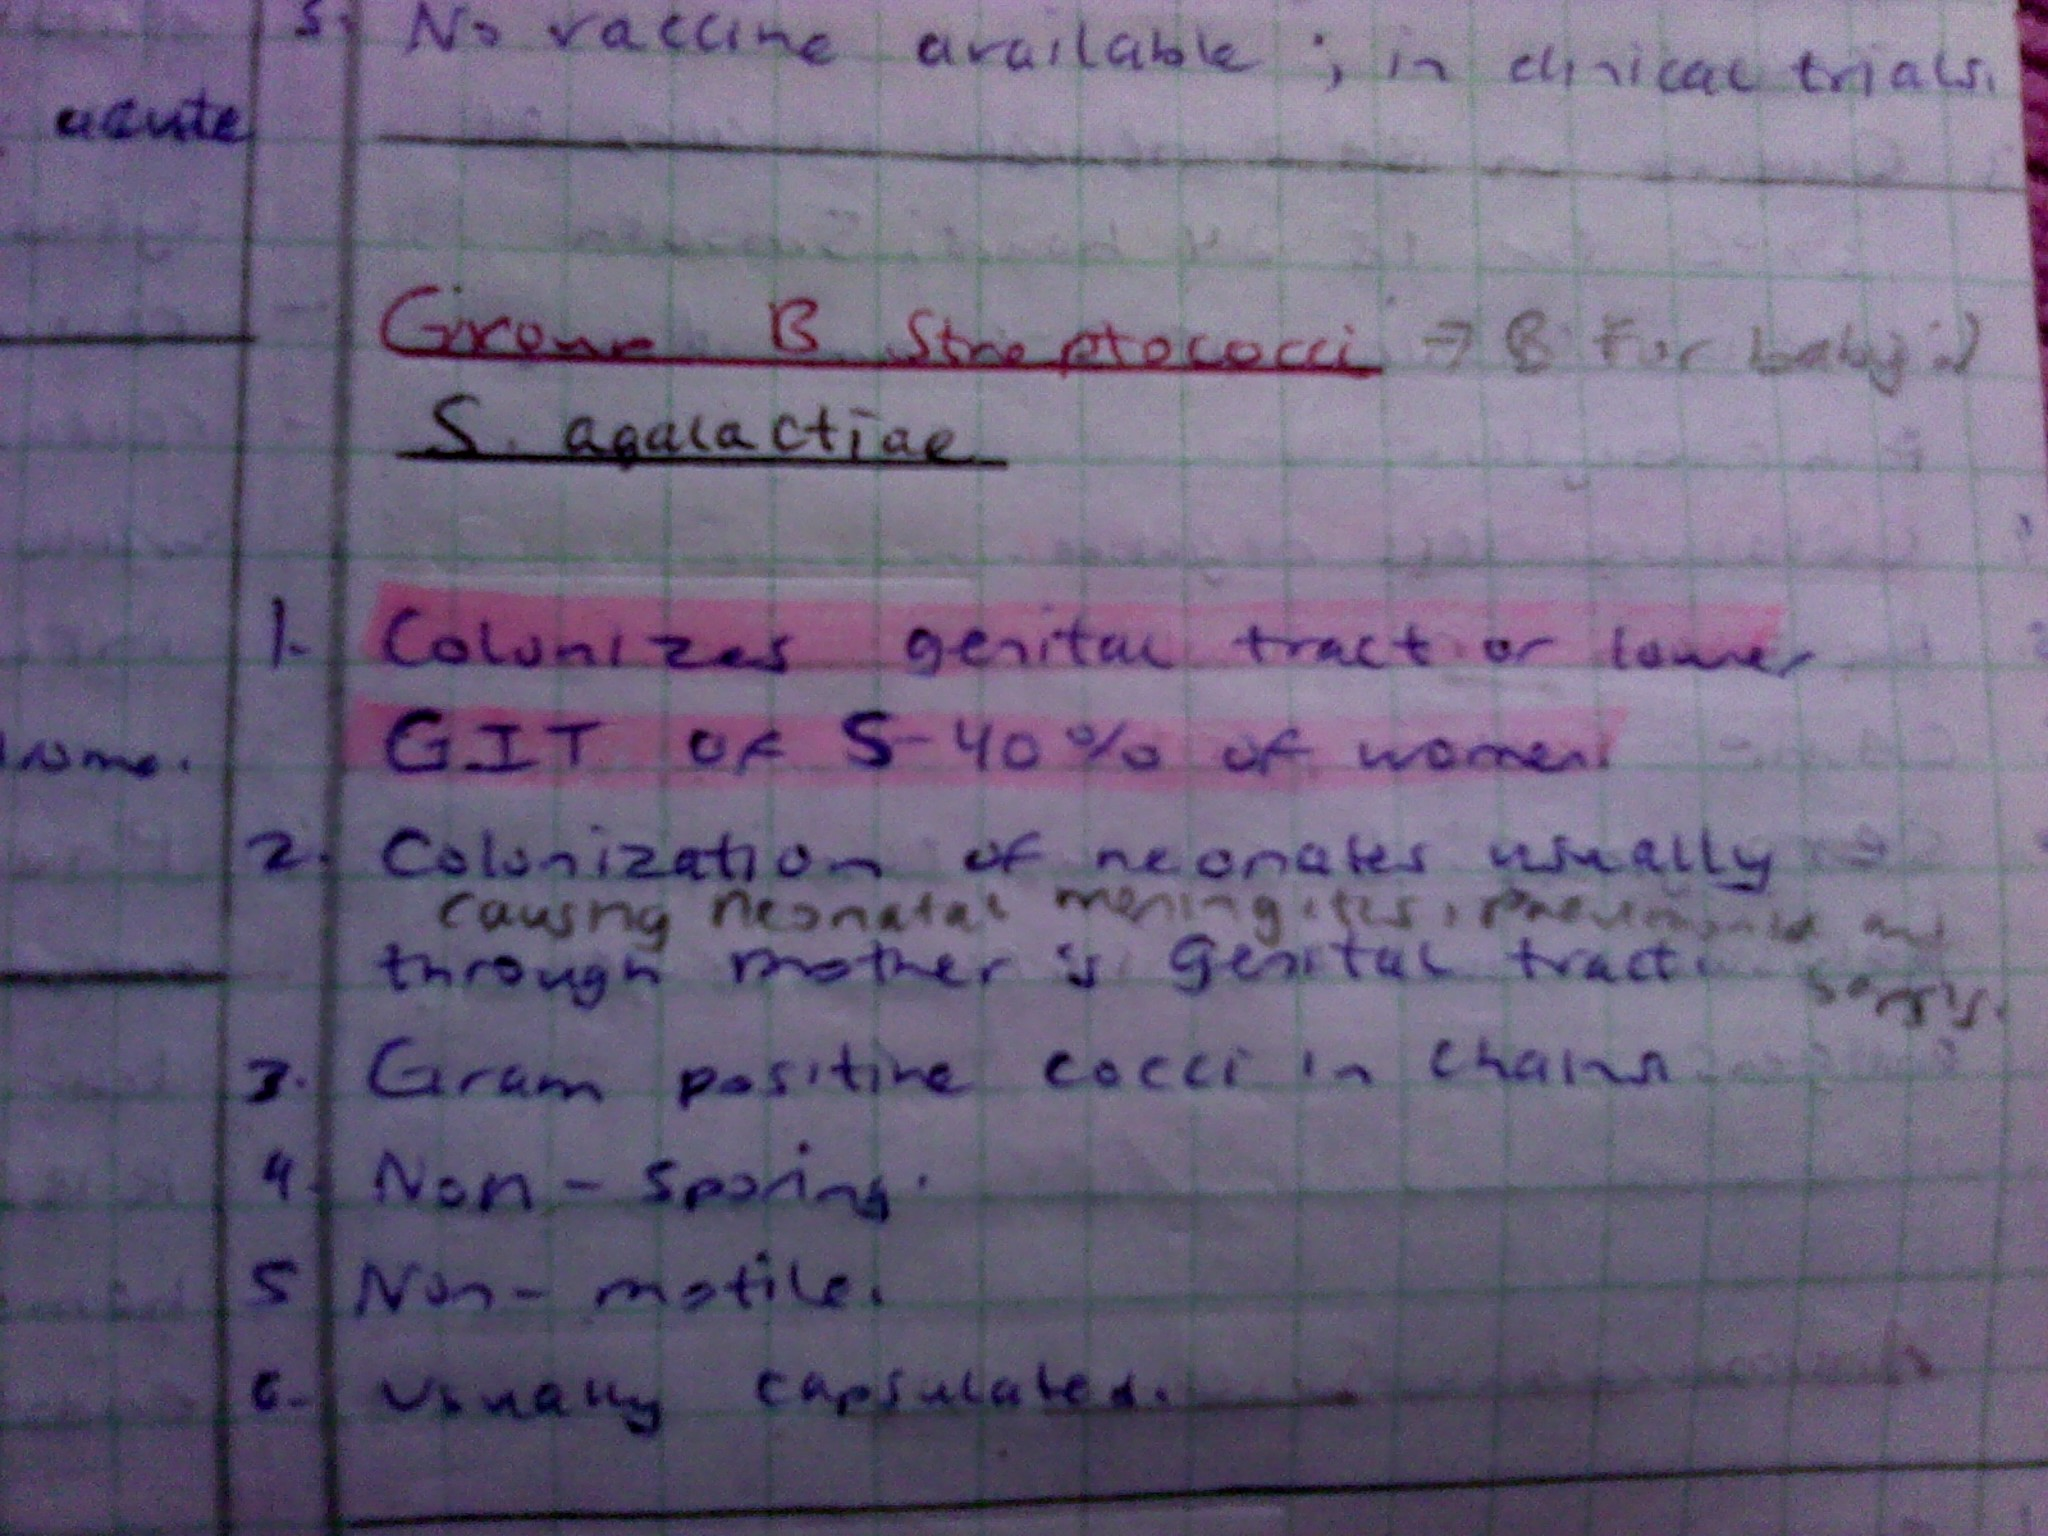 5. No vaccine available ; in clinical trials.
acute
Group B Streptococci → B for baby :)
S. agalactiae
1. Colonizes genital tract or lower
GIT of 5-40% of women
2. Colonization of neonates usually
causing neonatal meningitis, pneumonia and
through mother's genital tract.
sepsis.
3. Gram positive cocci in chains
4. Non-sporing.
5 Non-motile.
6. Usually capsulated.